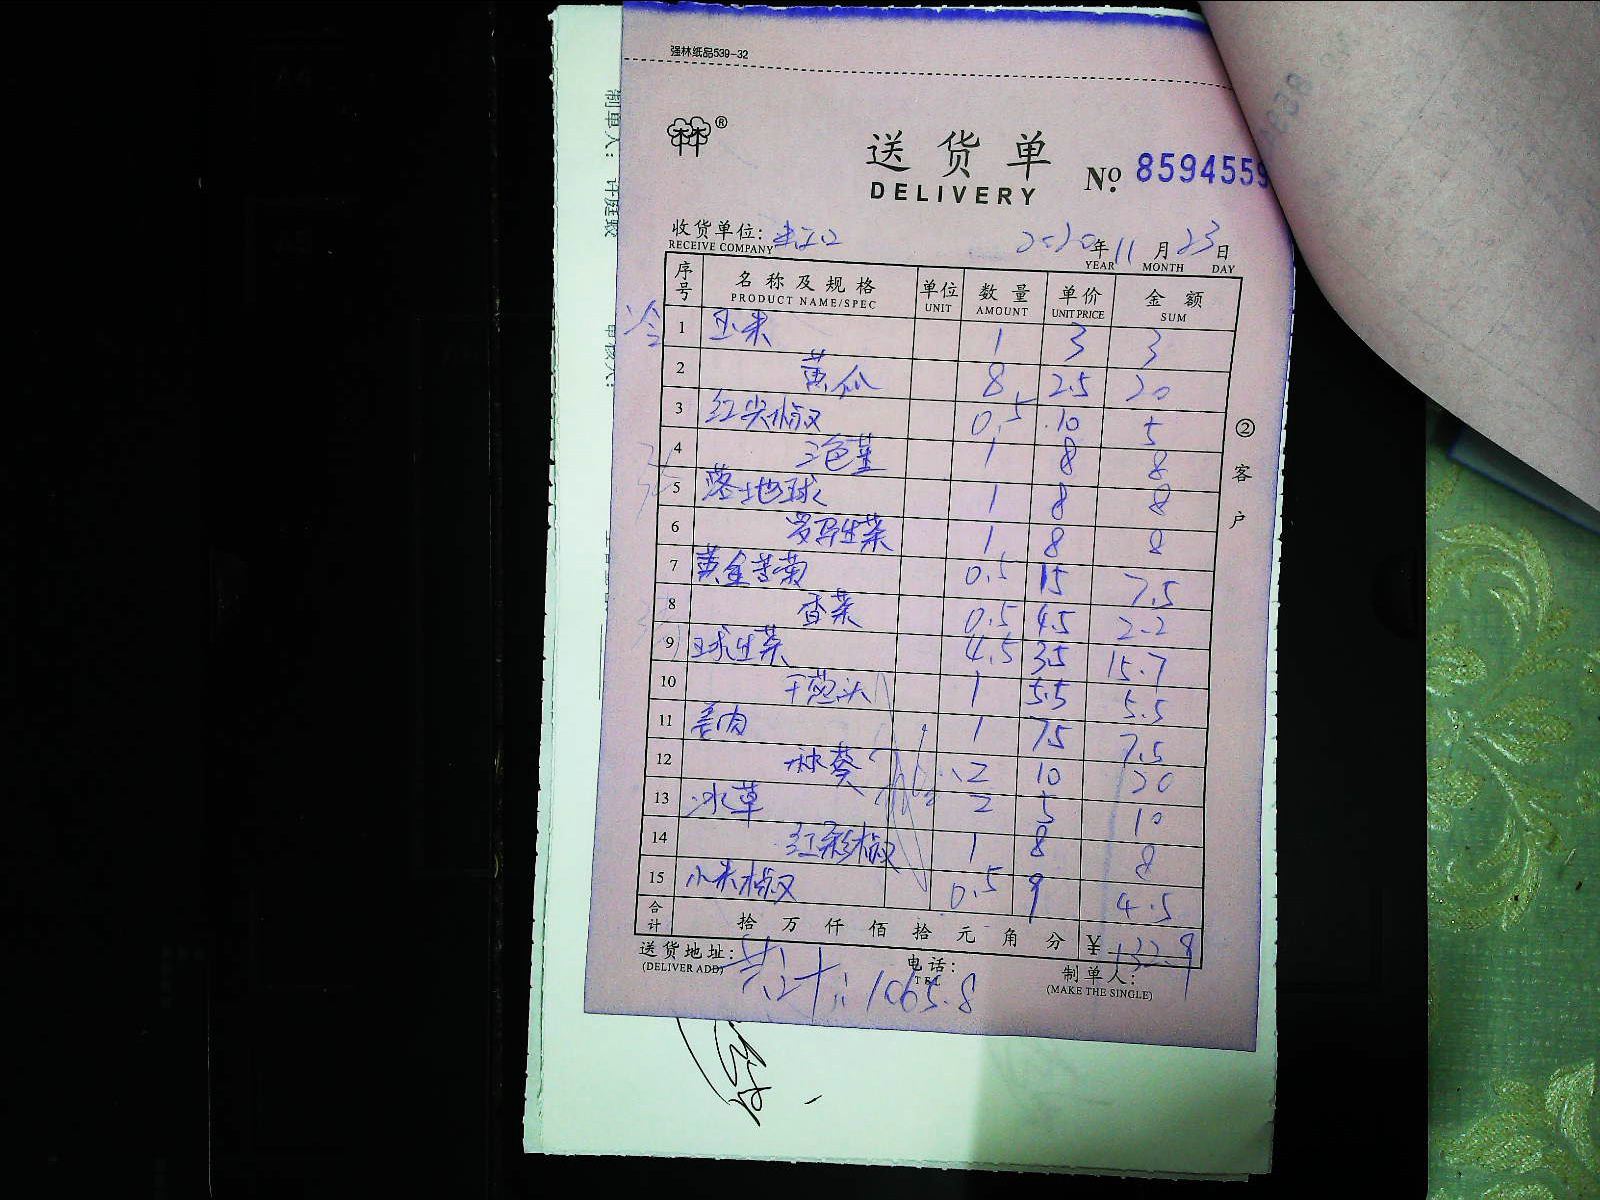 强林纸品539-32
®
送货单
DELIVERY
No. 8594559
收货单位:
RECEIVE COMPANY
2020年11月23日
YEAR MONTH DAY
序号 名称及规格 单位 数量 单价 金额
PRODUCT NAME/SPEC UNIT AMOUNT UNIT PRICE SUM
冷
1 玉米 1 3 3
2 黄瓜 8 2.5 20
3 红尖椒 0.5 10 5
4 三色堇 1 8 8
5 落地球 1 8 8
6 罗马生菜 1 8 8
7 黄金苦菊 0.5 15 7.5
8 香菜 0.5 4.5 2.2
9 球生菜 4.5 3.5 15.7
10 干葱头 1 5.5 5.5
11 姜肉 1 7.5 7.5
12 秋葵 2 10 20
13 冰草 2 5 10
14 红彩椒 1 8 8
15 小米椒 0.5 9 4.5
合计 拾 万 仟 佰 拾 元 角 分 ¥ 132.9
送货地址: 电话: 制单人:
(DELIVER ADD) TEL (MAKE THE SINGLE)
共计: 1065.8
② 客户
制单人: 许庭毅
审核人: